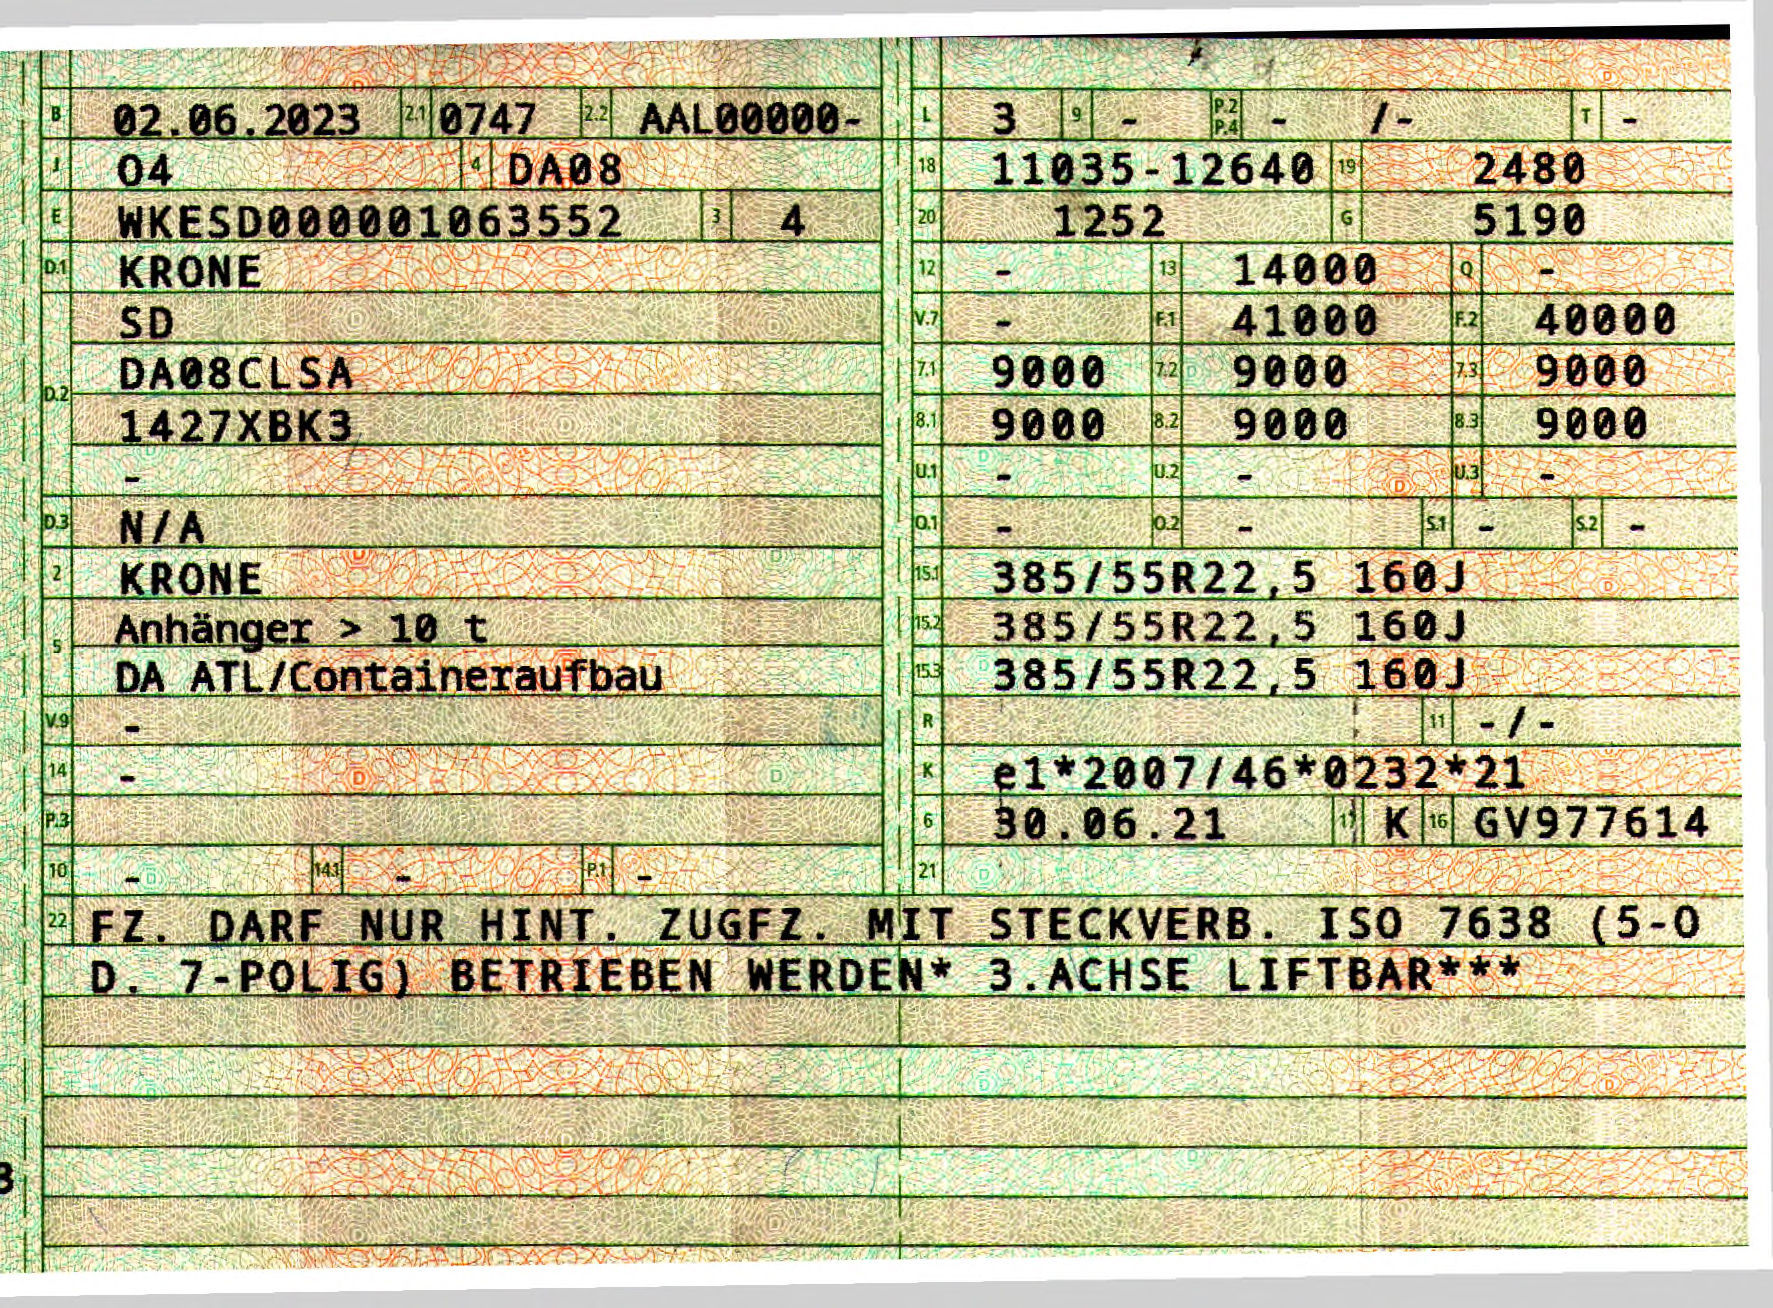 B 02.06.2023 2.1 0747 2.2 AAL00000-
J O4 4 DA08
E WKESD000001063552 3 4
D.1 KRONE
SD
D.2 DA08CLSA
1427XBK3
-
D.3 N/A
2 KRONE
5 Anhänger > 10 t
DA ATL/Containeraufbau
V.9 -
14 -
P.3
10 - 14.1 - P.1 -
L 3 9 - P.2 P.4 - /- T -
18 11035-12640 19 2480
20 1252 G 5190
12 - 13 14000 Q -
V.7 - F.1 41000 F.2 40000
7.1 9000 7.2 9000 7.3 9000
8.1 9000 8.2 9000 8.3 9000
U.1 - U.2 - U.3 -
O.1 - O.2 - S.1 - S.2 -
15.1 385/55R22,5 160J
15.2 385/55R22,5 160J
15.3 385/55R22,5 160J
R 11 -/-
K e1*2007/46*0232*21
6 30.06.21 17 K 16 GV977614
21
22 FZ. DARF NUR HINT. ZUGFZ. MIT STECKVERB. ISO 7638 (5-O
D. 7-POLIG) BETRIEBEN WERDEN* 3.ACHSE LIFTBAR***